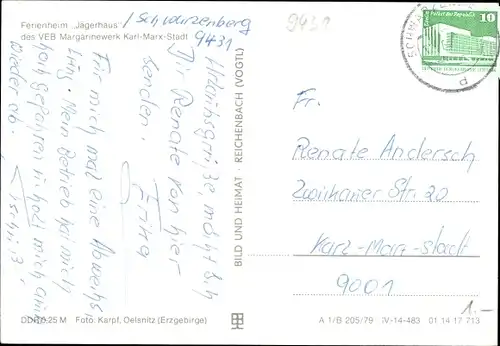 Ferienheim „Jägerhaus"
des VEB Margarinewerk Karl-Marx-Stadt
/ Schwarzenberg
9431
9431
Urlaubsgrüße möcht ich
Dir Renate von hier
senden.
Für mich mal eine
Mein Betrieb hat mich
hoch gefahren u. holt mich
wieder ab.
BILD UND HEIMAT REICHENBACH (VOGTL)
10
Palast der Republik
Fr.
Renate Andersch
Str. 20
Karl-Marx-Stadt
9001
1.-
DDR 0,25 M Foto: Karpf, Oelsnitz (Erzgebirge)
A 1/B 205/79 IV-14-483 01 14 17 713